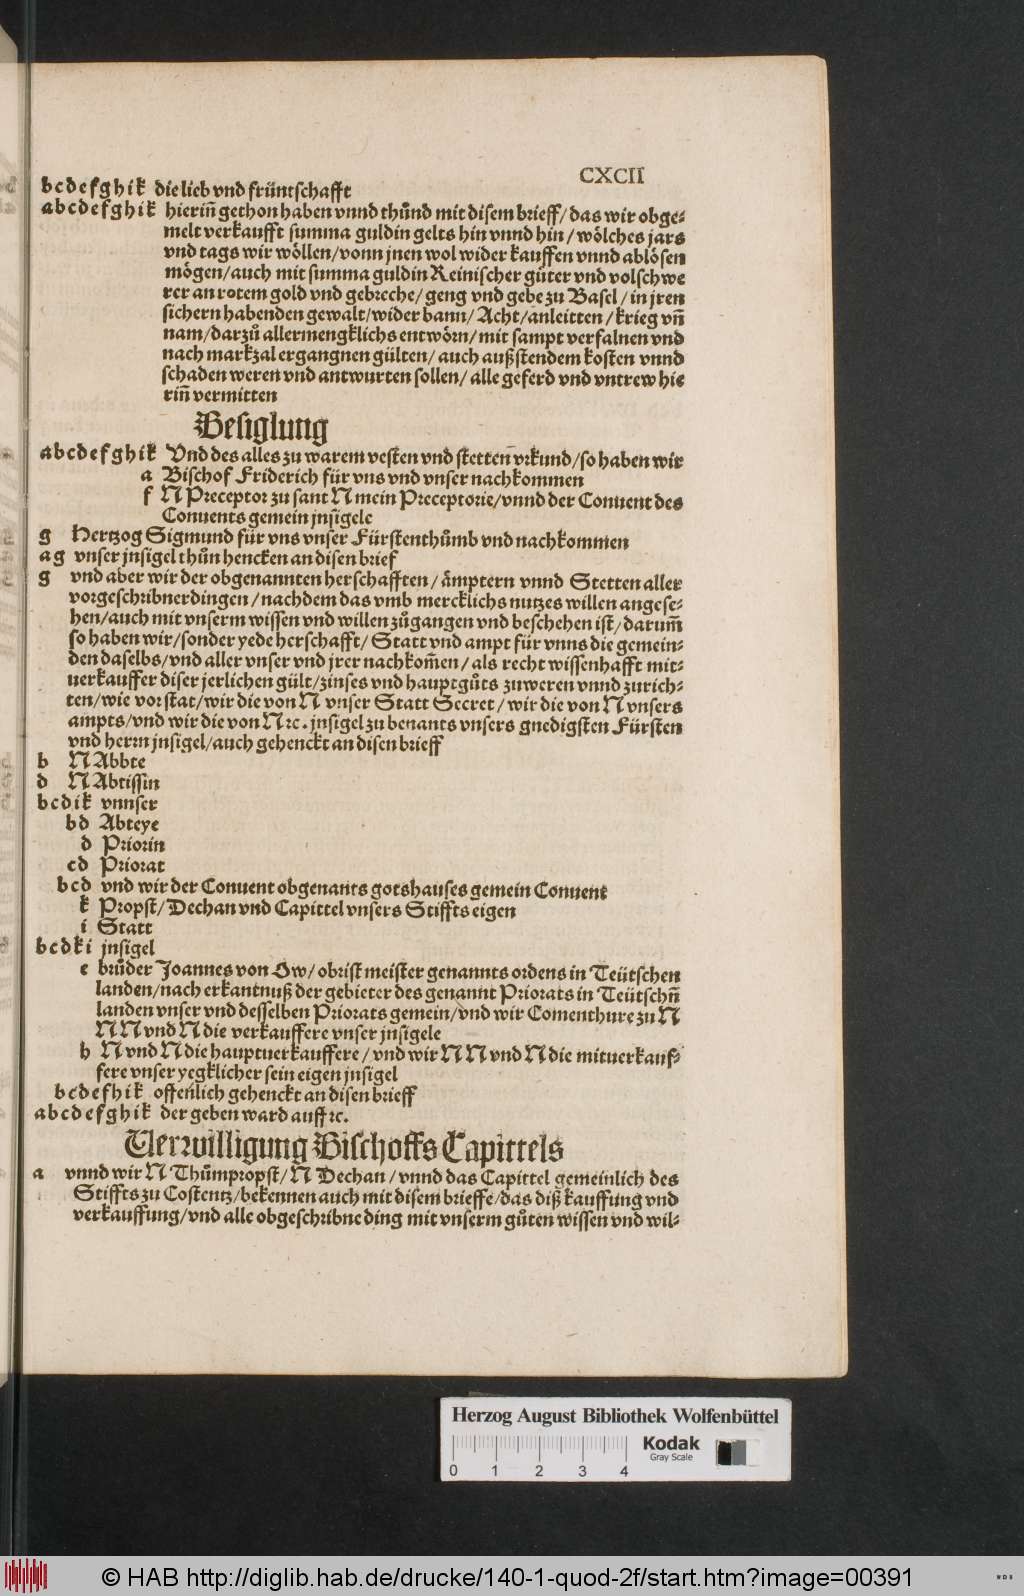 CXCII
b c d e f g h i k die lieb vnd früntschafft
a b c d e f g h i k hieriñ gethon haben vnnd thůnd mit disem brieff/ das wir obge-
melt verkaufft summa guldin gelts hin vnnd hin / wölches jars
vnd tags wir wöllen/ vonn jnen wol wider kauffen vnnd ablösen
mögen/ auch mit summa guldin Reinischer gůter vnd volschwe
rer an rotem gold vnd gebreche/ geng vnd gebe zu Basel / in jren
sichern habenden gewalt/ wider bann/ Acht/ anleitten / krieg vñ
nam/ darzů allermengklichs entwörn/ mit sampt verfalnen vnd
nach markzal ergangnen gülten/ auch außstendem kosten vnnd
schaden weren vnd antwurten sollen/ alle geferd vnd vntrew hie
riñ vermitten
Besiglung
a b c d e f g h i k Vnd des alles zu warem vesten vnd stetten vrkund/ so haben wir
a Bischof Friderich für vns vnd vnser nachkommen
f N Preceptor zu sant N mein Preceptorie/ vnnd der Conuent des
Conuents gemein jnsigele
g Hertzog Sigmund für vns vnser Fürstenthůmb vnd nachkommen
a g vnser jnsigel thůn hencken an disen brief
g vnd aber wir der obgenannten herschafften / åmptern vnnd Stetten aller
vorgeschribner dingen / nachdem das vmb mercklichs nutzes willen angese-
hen/ auch mit vnserm wissen vnd willen zůgangen vnd beschehen ist/ darum̃
so haben wir/ sonder yede herschafft/ Statt vnd ampt für vnns die gemein-
den daselbs/ vnd aller vnser vnd jrer nachkom̃en / als recht wissenhafft mit-
uerkauffer diser jerlichen gült/ zinses vnd hauptgůts zuweren vnnd zurich-
ten/ wie vor stat/ wir die von N vnser Statt Secret / wir die von N vnsers
ampts/ vnd wir die von N ꝛc. jnsigel zu benants vnsers gnedigsten Fürsten
vnd herrn jnsigel/ auch gehenckt an disen brieff
b N Abbte
d N Abtissin
b c d i k vnnser
b d Abteye
d Priorin
c d Priorat
b c d vnd wir der Conuent obgenants gotshauses gemein Conuent
k Propst/ Dechan vnd Capittel vnsers Stiffts eigen
i Statt
b c d k i jnsigel
e brůder Joannes von Ow/ obrist meister genannts ordens in Teütschen
landen/ nach erkantnuß der gebieter des genannt Priorats in Teütschñ
landen vnser vnd desselben Priorats gemein/ vnd wir Comenthure zu N
N N vnd N die verkauffere vnser jnsigele
h N vnd N die hauptuerkauffere / vnd wir N N vnd N die mituerkauf-
fere vnser yegklicher sein eigen jnsigel
b c d e f h i k offenlich gehenckt an disen brieff
a b c d e f g h i k der geben ward auff ꝛc.
Verwilligung Bischoffs Capittels
a vnnd wir N Thůmpropst/ N Dechan / vnnd das Capittel gemeinlich des
Stiffts zu Costentz/ bekennen auch mit disem brieffe/ das diß kauffung vnd
verkauffung/ vnd alle obgeschribne ding mit vnserm gůten wissen vnd wil-
Herzog August Bibliothek Wolfenbüttel
Kodak
Gray Scale
0 1 2 3 4
© HAB http://diglib.hab.de/drucke/140-1-quod-2f/start.htm?image=00391